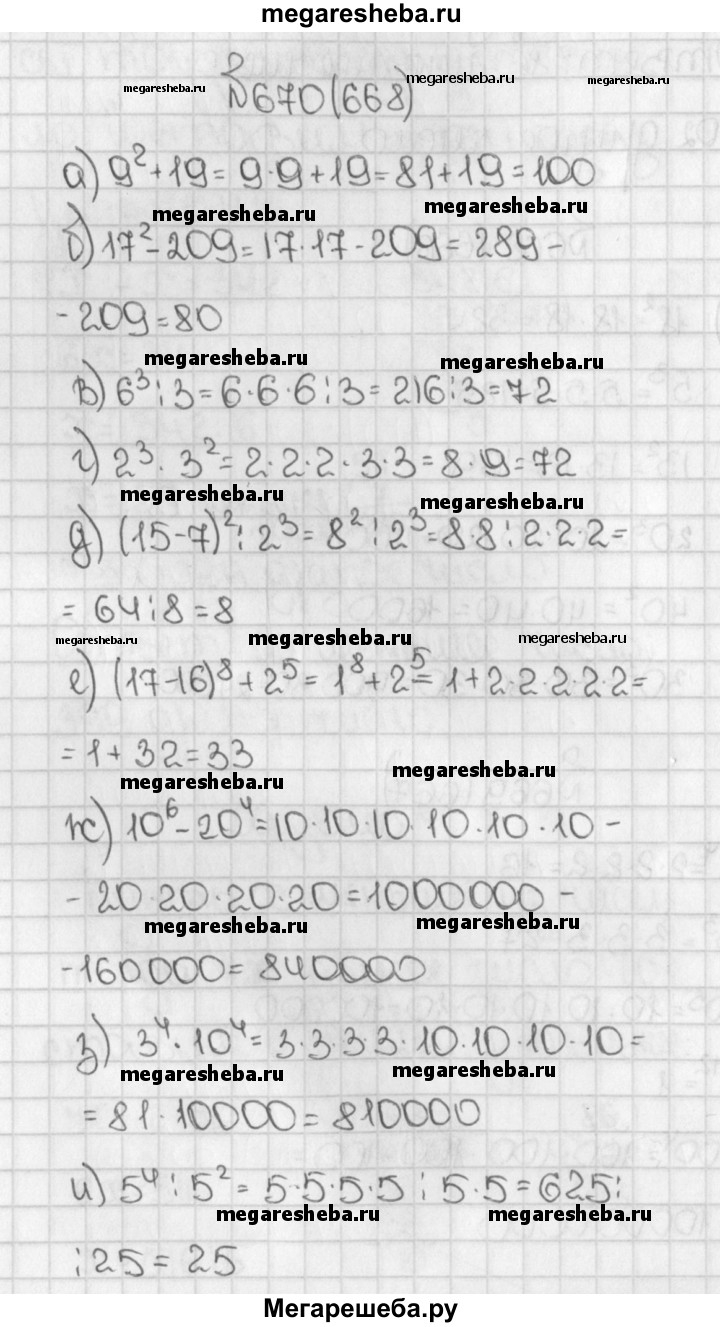 megaresheba.ru
megaresheba.ru №670(668) megaresheba.ru megaresheba.ru
а) 9²+19=9·9+19=81+19=100
megaresheba.ru megaresheba.ru
б) 17²-209=17·17-209=289-
-209=80
megaresheba.ru megaresheba.ru
в) 6³:3=6·6·6:3=216:3=72
г) 2³·3²=2·2·2·3·3=8·9=72
megaresheba.ru megaresheba.ru
д) (15-7)²:2³=8²:2³=8·8:2·2·2=
=64:8=8
megaresheba.ru megaresheba.ru megaresheba.ru
е) (17-16)⁸+2⁵=1⁸+2⁵=1+2·2·2·2·2=
=1+32=33
megaresheba.ru megaresheba.ru
ж) 10⁶-20⁴=10·10·10·10·10·10-
-20·20·20·20=1000000-
megaresheba.ru megaresheba.ru
-160000=840000
з) 3⁴·10⁴=3·3·3·3·10·10·10·10=
megaresheba.ru megaresheba.ru
=81·10000=810000
и) 5⁴:5²=5·5·5·5:5·5=625:
megaresheba.ru megaresheba.ru
:25=25
Мегарешеба.ру